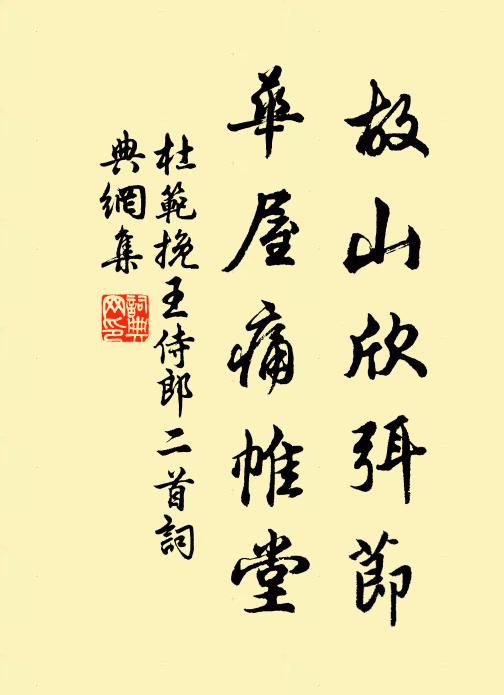 故山欣弭節
華屋痛帷堂
杜範挽王侍郎二首詞
典網集
詞典網印